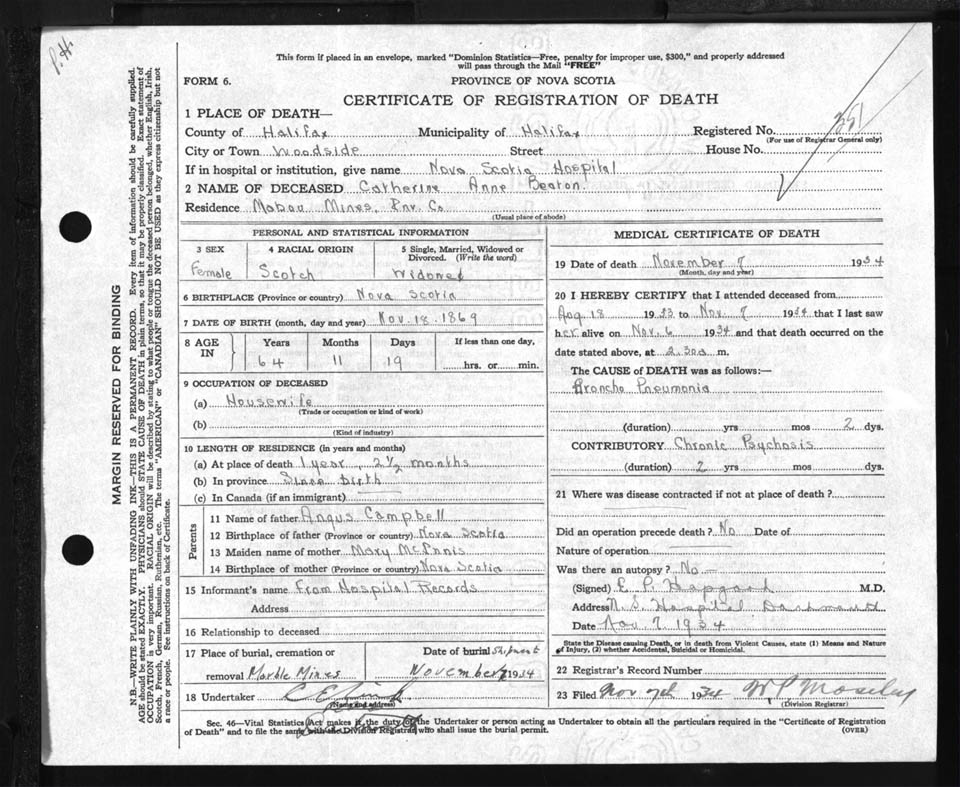 P. H.
This form if placed in an envelope, marked "Dominion Statistics—Free, penalty for improper use, $300," and properly addressed
will pass through the Mail "FREE"
FORM 6.
PROVINCE OF NOVA SCOTIA
CERTIFICATE OF REGISTRATION OF DEATH
1 PLACE OF DEATH—
County of Halifax Municipality of Halifax Registered No. 351
(For use of Registrar General only)
City or Town Woodside Street House No.
If in hospital or institution, give name Nova Scotia Hospital
2 NAME OF DECEASED Catherine Anne Beaton
Residence Mabou Mines, Inv. Co
(Usual place of abode)
PERSONAL AND STATISTICAL INFORMATION
3 SEX Female
4 RACIAL ORIGIN Scotch
5 Single, Married, Widowed or Divorced. (Write the word) Widowed
6 BIRTHPLACE (Province or country) Nova Scotia
7 DATE OF BIRTH (month, day and year) Nov. 18. 1869
8 AGE IN Years 64 Months 11 Days 19 If less than one day, hrs. or min.
9 OCCUPATION OF DECEASED
(a) Housewife
(Trade or occupation or kind of work)
(b)
(Kind of industry)
10 LENGTH OF RESIDENCE (in years and months)
(a) At place of death 1 year, 2½ months
(b) In province Since birth
(c) In Canada (if an immigrant)
Parents
11 Name of father Angus Campbell
12 Birthplace of father (Province or country) Nova Scotia
13 Maiden name of mother Mary McInnis
14 Birthplace of mother (Province or country) Nova Scotia
15 Informant's name From Hospital Records
Address
16 Relationship to deceased
17 Place of burial, cremation or Date of burial Shipment
removal Marble Mines November 7 1934
18 Undertaker
(Name and address)
MEDICAL CERTIFICATE OF DEATH
19 Date of death November 7 1934
(Month, day and year)
20 I HEREBY CERTIFY that I attended deceased from
Aug 18 1933 to Nov. 7 1934 that I last saw
her alive on Nov. 6 1934 and that death occurred on the
date stated above, at 2.30a m.
The CAUSE OF DEATH was as follows:—
Broncho Pneumonia
(duration) yrs mos 2 dys.
CONTRIBUTORY Chronic Psychosis
(duration) 2 yrs mos dys.
21 Where was disease contracted if not at place of death?
Did an operation precede death? No Date of
Nature of operation
Was there an autopsy? No
(Signed) E. P. Hapgood M.D.
Address N. S. Hospital Dartmouth
Date Nov 7. 1934
State the Disease causing Death, or in death from Violent Causes, state (1) Means and Nature
of Injury, (2) whether Accidental, Suicidal or Homicidal.
22 Registrar's Record Number
23 Filed Nov 7th 1934 W P Moseley
(Division Registrar)
Sec. 46—Vital Statistics Act makes it the duty of the Undertaker or person acting as Undertaker to obtain all the particulars required in the "Certificate of Registration
of Death" and to file the same with the Division Registrar who shall issue the burial permit. (OVER)
MARGIN RESERVED FOR BINDING
N.B.—WRITE PLAINLY WITH UNFADING INK—THIS IS A PERMANENT RECORD. Every item of information should be carefully supplied.
AGE should be stated EXACTLY. PHYSICIANS should STATE CAUSE OF DEATH in plain terms, so that it may be properly classified. Exact statement of
OCCUPATION is very important. RACIAL ORIGIN will be described by stating to what people or tongue the deceased person belonged, whether English, Irish,
Scotch, French, German, Russian, Ruthenian, etc. The terms "AMERICAN" or "CANADIAN" SHOULD NOT BE USED as they express citizenship but not
a race or people. See instructions on back of Certificate.